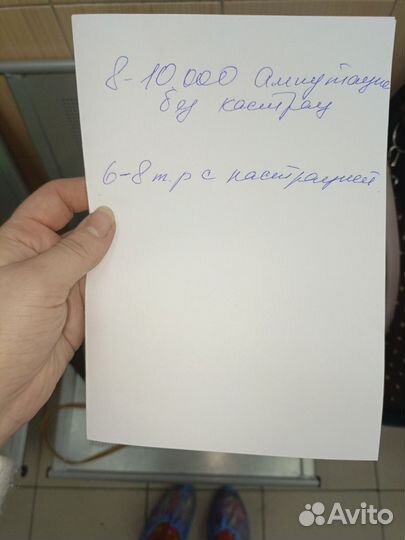 8-10,000 Ампутация
без кастрац
6-8 т.р с кастрацией
Avito